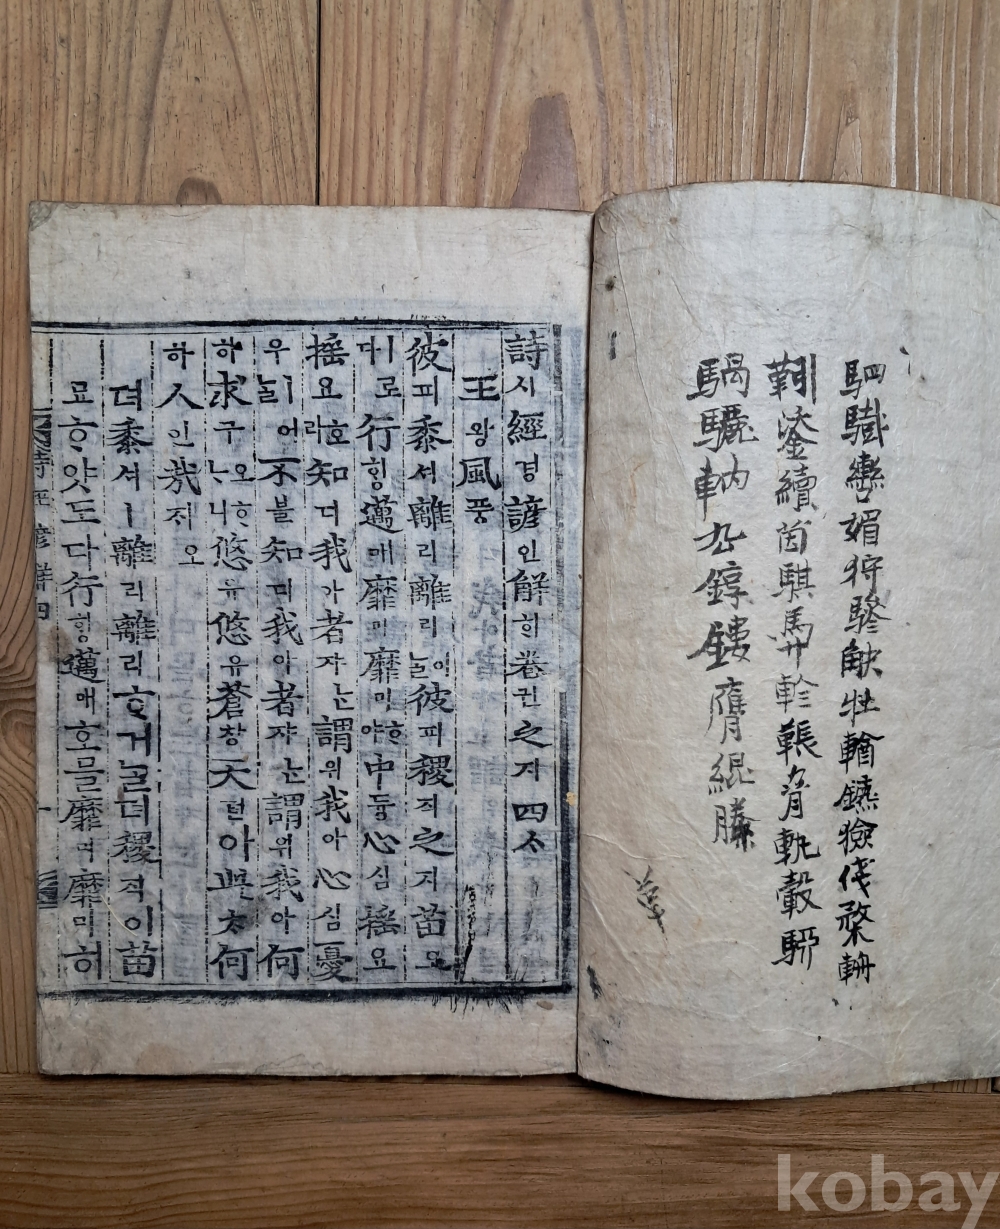 駟驖轡媚狩驂觖牡輶鑣獫俴楘軜
靷鋈續茵騏馵軫韔脅軌轂駵
騧驪軜厹錞鏤膺緄縢
詩시經경諺언解ᄒᆡ卷권之지四ᄉᆞ
王왕風풍
彼피黍셔離리離리이ᄂᆞᆯ彼피稷직之지苗묘
ㅣ로다行ᄒᆡᆼ邁매靡미靡미ᄒᆞ야中듕心심搖요
搖요호라知디我아者쟈ᄂᆞᆫ謂위我아心심憂
우ㅣ어ᄂᆞᆯ不블知디我아者쟈ᄂᆞᆫ謂위我아何
하求구오ᄒᆞᄂᆞ니悠유悠유蒼창天텬아此ᄎᆞ何
하人인哉ᄌᆡ오
뎌黍셔ㅣ離리離리ᄒᆞ거ᄂᆞᆯ뎌稷직이苗
묘ᄒᆞ얏도다行ᄒᆡᆼ邁매호ᄆᆞᆯ靡미靡미히
詩經諺解四 一
kobay